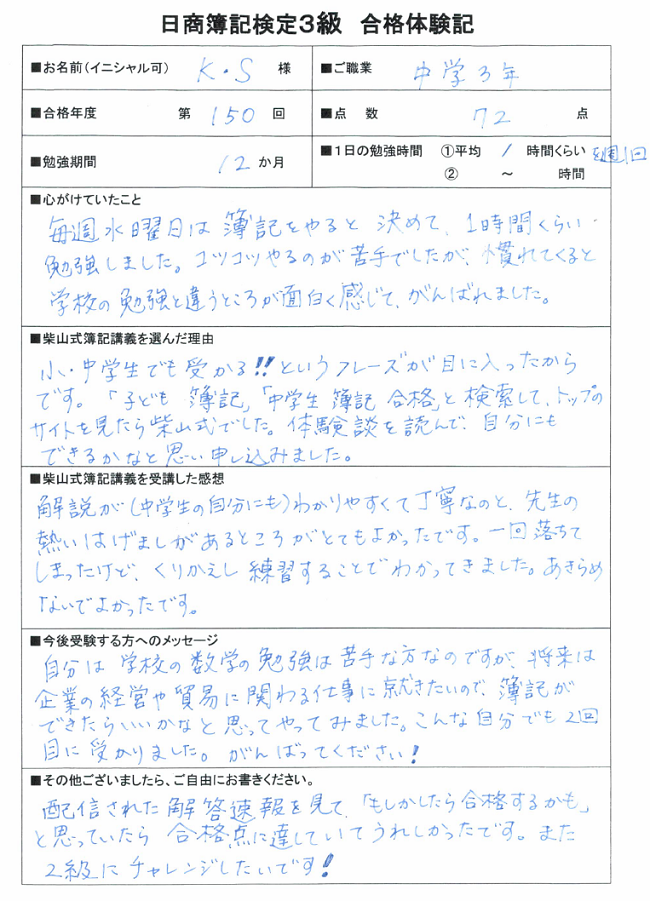 日商簿記検定3級 合格体験記
■お名前(イニシャル可) K・S 様 ■ご職業 中学3年
■合格年度 第 150 回 ■点 数 72 点
■勉強期間 12 か月 ■1日の勉強時間 ①平均 1 時間くらい を週1回
② ～ 時間
■心がけていたこと
毎週水曜日は簿記をやると決めて、1時間くらい
勉強しました。コツコツやるのが苦手でしたが、慣れてくると
学校の勉強と違うところが面白く感じて、がんばれました。
■柴山式簿記講義を選んだ理由
小・中学生でも受かる!!というフレーズが目に入ったから
です。「子ども 簿記」「中学生 簿記 合格」と検索して、トップの
サイトを見たら柴山式でした。体験談を読んで、自分にも
できるかなと思い申し込みました。
■柴山式簿記講義を受講した感想
解説が(中学生の自分にも)わかりやすくて丁寧なのと、先生の
熱いはげましがあるところがとてもよかったです。一回落ちて
しまったけど、くりかえし練習することでわかってきました。あきらめ
ないでよかったです。
■今後受験する方へのメッセージ
自分は学校の数学の勉強は苦手な方なのですが、将来は
企業の経営や貿易に関わる仕事に就きたいので、簿記が
できたらいいかなと思ってやってみました。こんな自分でも2回
目に受かりました。がんばってください!
■その他ございましたら、ご自由にお書きください。
配信された解答速報を見て、「もしかしたら合格するかも」
と思っていたら合格点に達していてうれしかったです。また
2級にチャレンジしたいです!